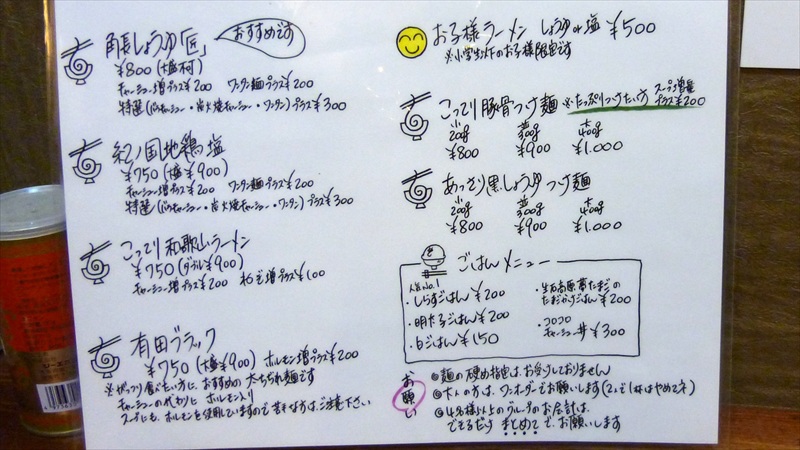 角長しょうゆ「匠」 おすすめです
¥800(大盛不可)
チャーシュー増プラス¥200 ワンタン麺プラス¥200
特選(バラチャーシュー・炭火焼チャーシュー・ワンタン)プラス¥300
紀ノ国地鶏塩
¥750(大盛¥900)
チャーシュー増プラス¥200 ワンタン麺プラス¥200
特選(バラチャーシュー・炭火焼チャーシュー・ワンタン)プラス¥300
こってり和歌山ラーメン
¥750(ダブル¥900)
チャーシュー増プラス¥200 ねぎ増プラス¥100
有田ブラック
¥750(大盛¥900) ホルモン増プラス¥200
※がっつり食べたい方に、おすすめの太ちぢれ麺です
チャーシューの代わりに ホルモン入り
スープにも、ホルモンを使用していますので苦手な方は、ご注意下さい
お子様ラーメン しょうゆor塩 ¥500
※小学生以下のお子様限定です
こってり豚骨つけ麺 ※たっぷりつけたい方 スープ増量プラス¥200
小 並 大
200g 300g 400g
¥800 ¥900 ¥1.000
あっさり黒しょうゆつけ麺
小 並 大
200g 300g 400g
¥800 ¥900 ¥1.000
ごはんメニュー
人気No.1
・しらすごはん¥200
・明太子ごはん¥200
・白ごはん¥150
・生石高原幸たまごの
たまごかけごはん¥200
・コロコロ
チャーシュー丼¥300
お願い
◎麺の硬め指定は、お受けしておりません
◎大人の方は、ワンオーダーでお願いします(2人で1杯はやめてネ)
◎4名様以上のグループのお会計は、
できるだけ まとめて で、お願いします